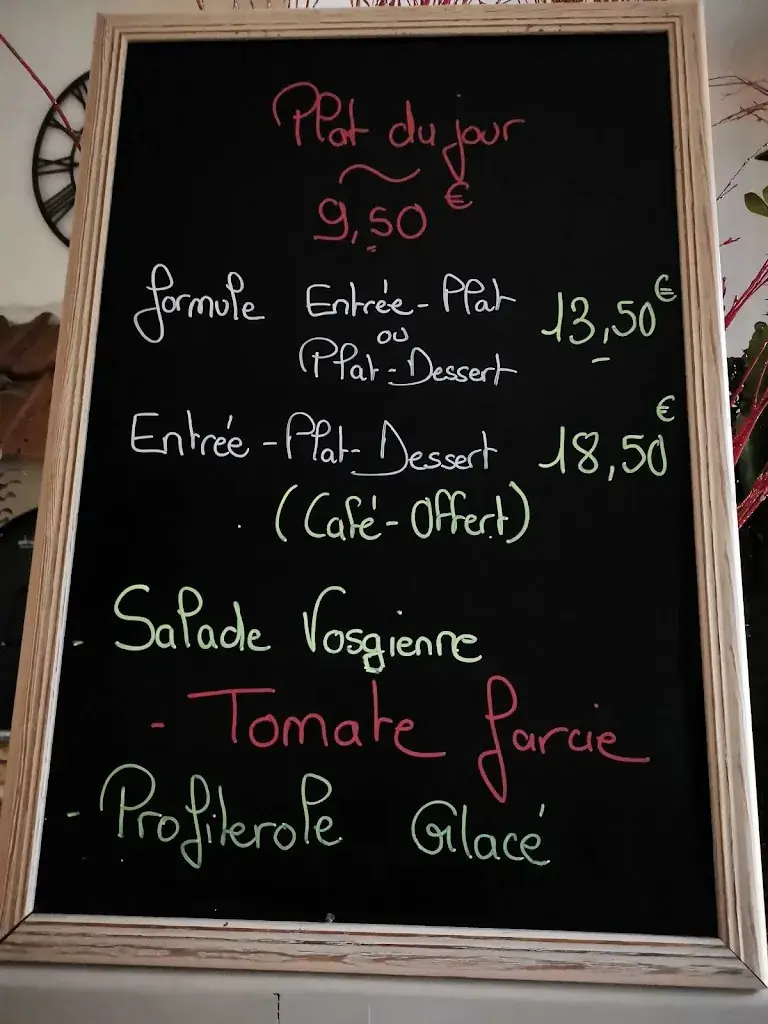 Plat du jour
9,50€
formule Entrée-Plat 13,50€
ou
Plat-Dessert
Entrée-Plat-Dessert 18,50€
(Café-Offert)
- Salade Vosgienne
- Tomate farcie
- Profiterole Glacé